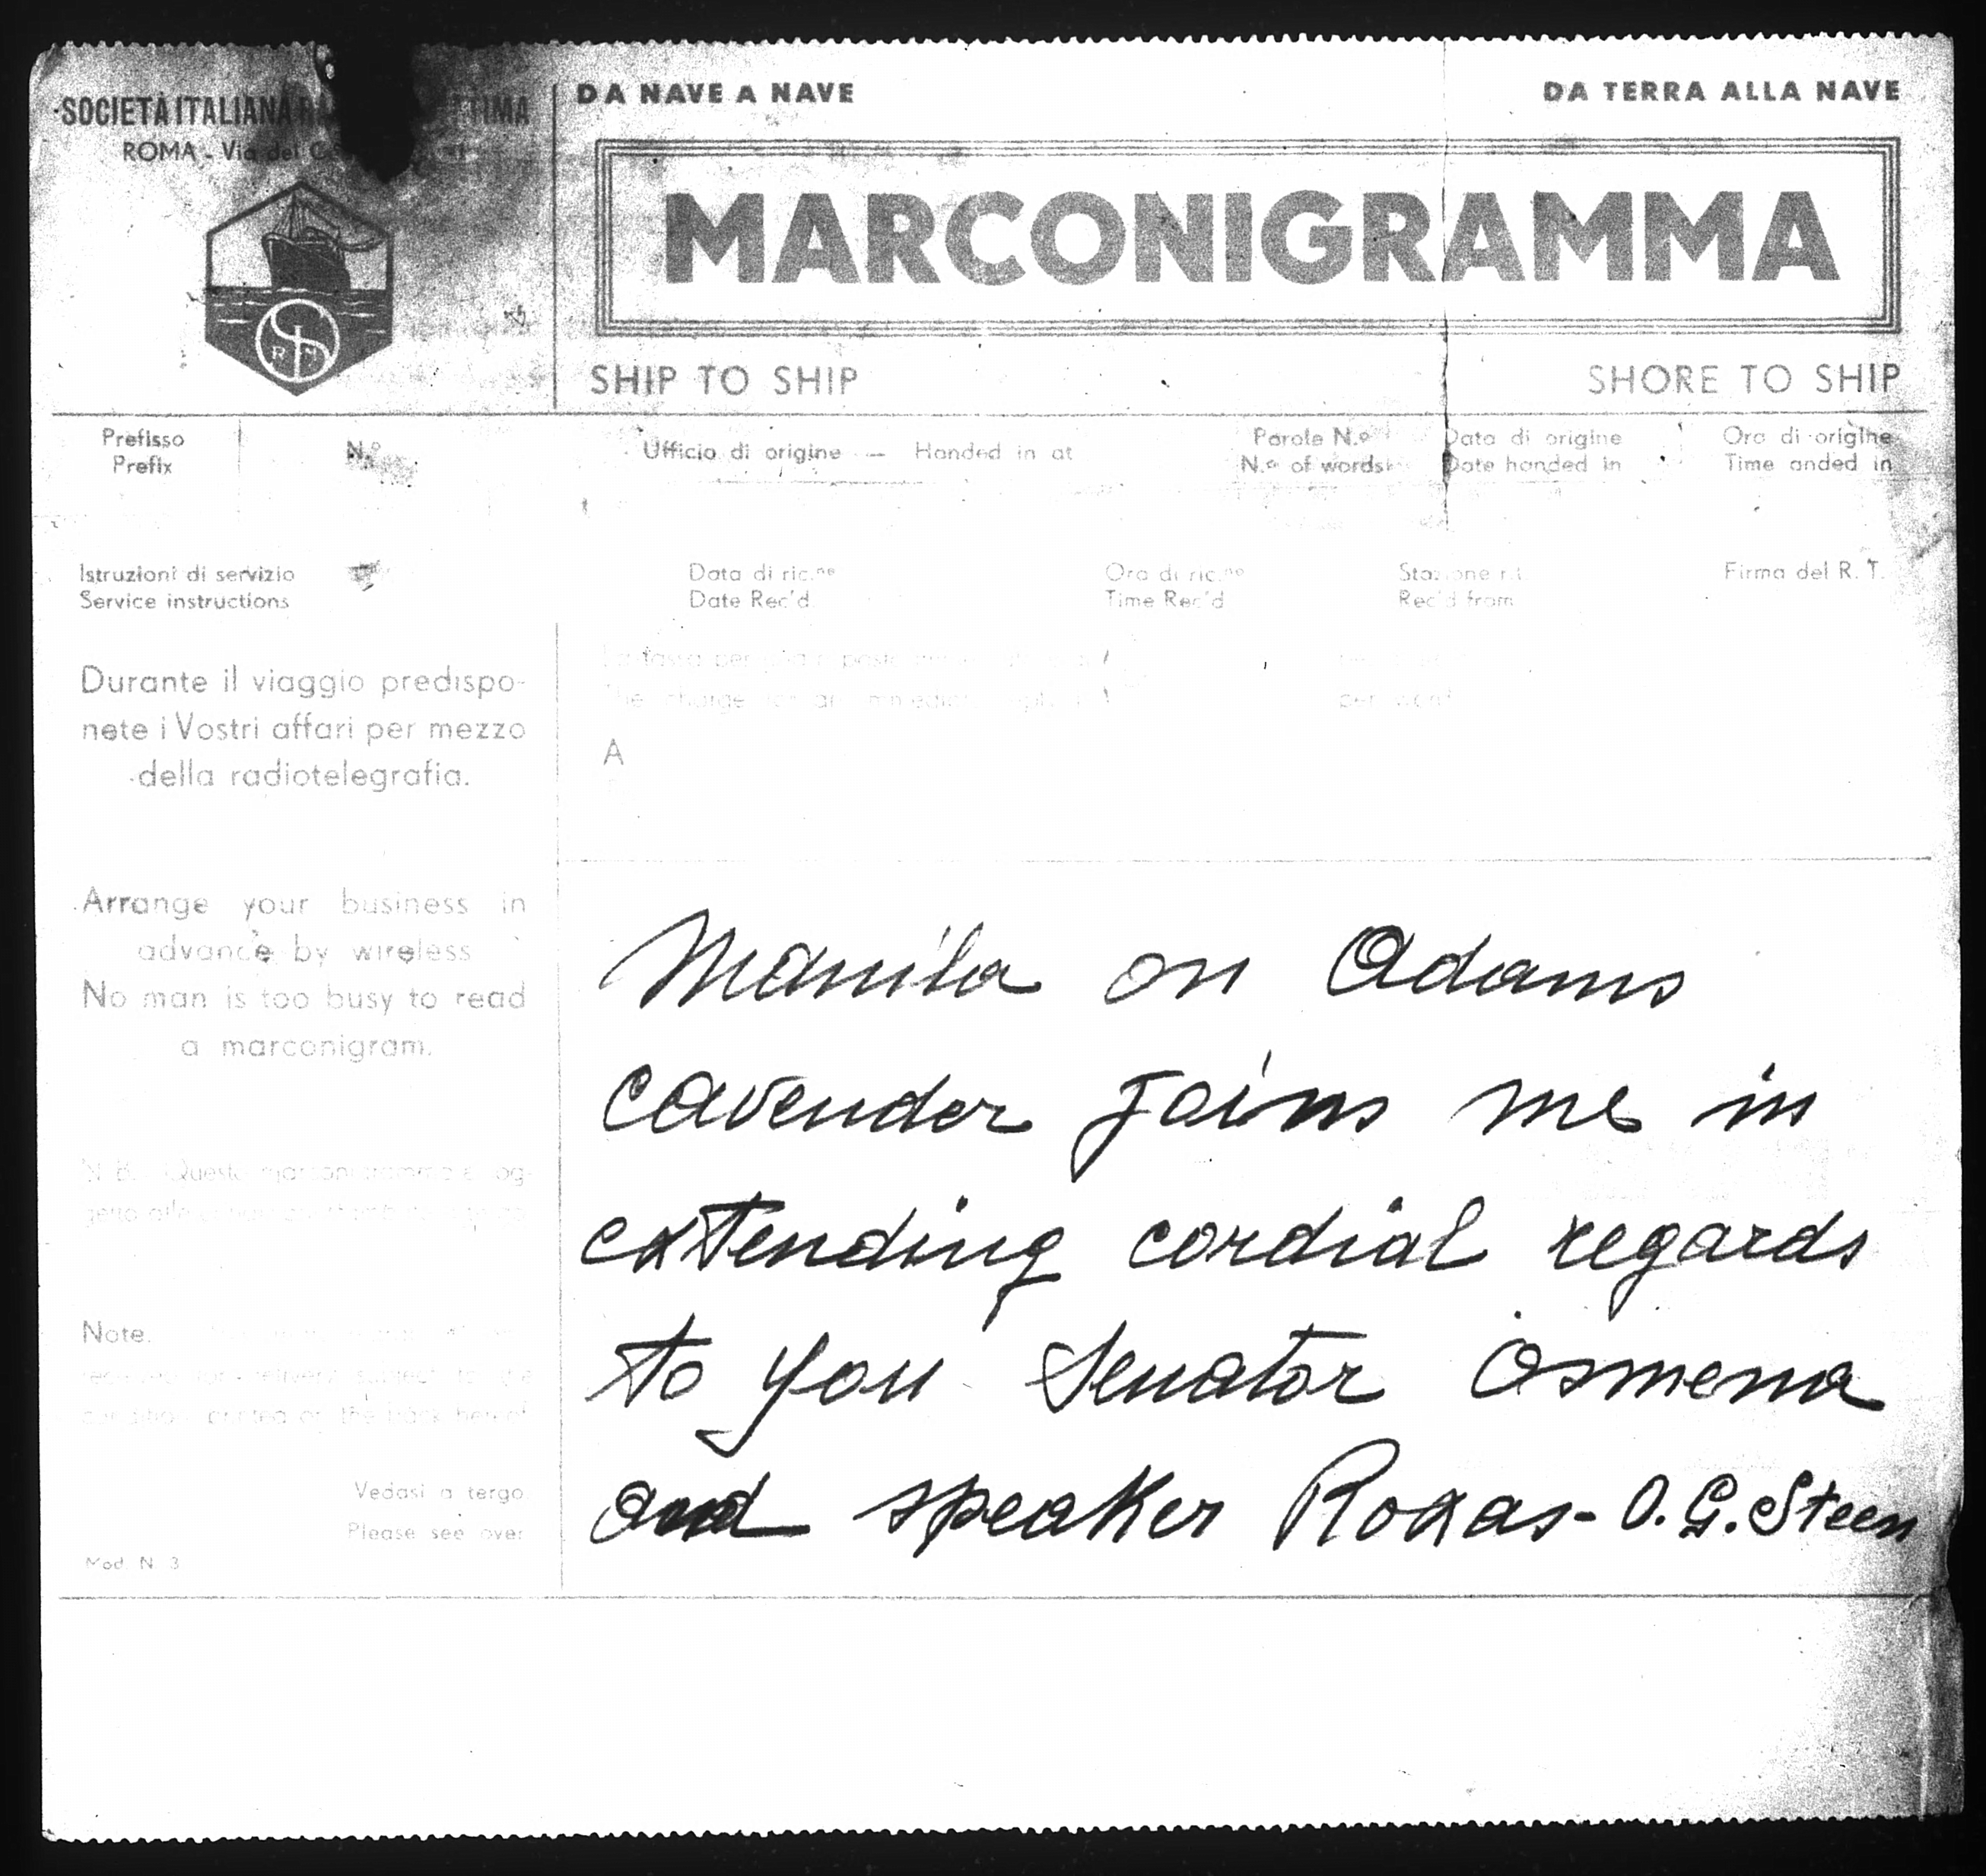 SOCIETÀ ITALIANA
TIMA
ROMA - Via del
DA NAVE A NAVE
DA TERRA ALLA NAVE
MARCONIGRAMMA
R M
SHIP TO SHIP
SHORE TO SHIP
Prefisso
Prefix
N.º
Ufficio di origine — Handed in at
Parole N.º
N.º of words
Data di origine
Date handed in
Ora di origine
Time anded in
Istruzioni di servizio
Service instructions
Data di ric.ne
Date Rec'd
Ora di ric.ne
Time Rec'd
Stazione r.t.
Rec'd from
Firma del R. T.
Durante il viaggio predispo-
nete i Vostri affari per mezzo
della radiotelegrafia.
per word
A
Arrange your business in
advance by wireless
No man is too busy to read
a marconigram.
N. B. Questo marconigramma è sog-
Note.
Vedasi a tergo
Please see over
Mod. N. 3
Manila on Adams
cavender joins me in
extending cordial regards
to you Senator Osmena
and speaker Roxas - O. G. Steen